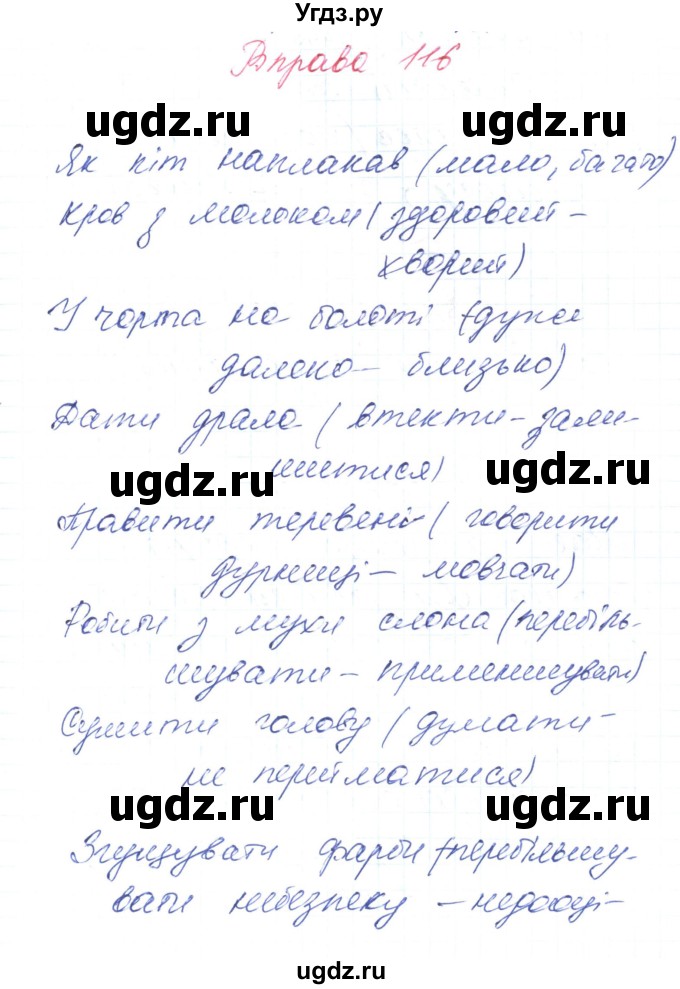 Угдз.ру
Вправа 116
ugdz.ru ugdz.ru
Як кіт наплакав (мало, багато)
Кров з молоком (здоровий –
хворий)
У чорта на болоті (дуже
ugdz.ru ugdz.ru
далеко – близько)
Дати драла (втекти – зали-
шитися)
ugdz.ru ugdz.ru
Правити теревені (говорити
дурниці – мовчати)
Робити з мухи слона (перебіль-
ugdz.ru ugdz.ru
шувати – применшувати)
Сушити голову (думати –
не перейматися)
ugdz.ru ugdz.ru
Згущувати фарби (перебільшу-
вати небезпеку – недооці-
ugdz.ru